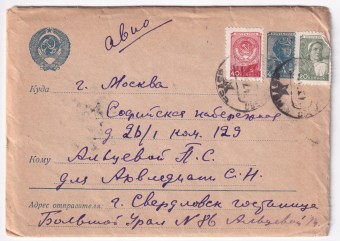 авиа
Куда г. Москва
Софийская набережная
д. 26/1 ком. 129
Кому Альцевой П.С.
для
Адрес отправителя: г. Свердловск гостиница
Большой Урал № 86 Альцевой П.